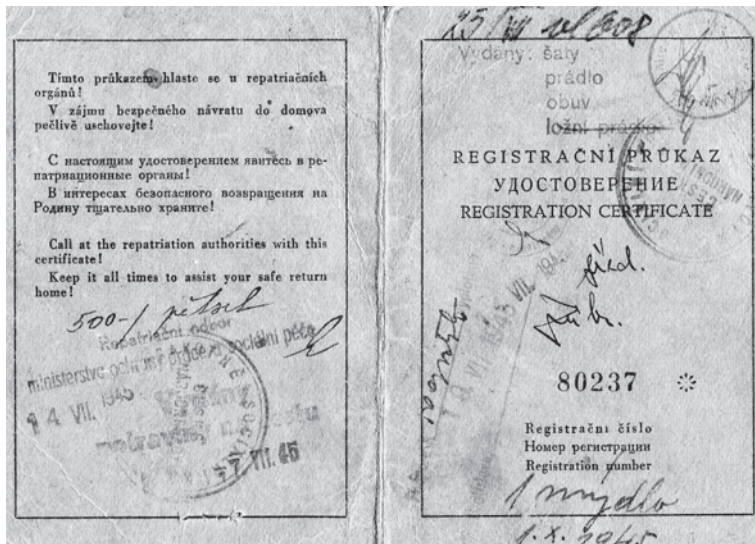 Tímto průkazem hlaste se u repatriačních
orgánů!
V zájmu bezpečného návratu do domova
pečlivě uschovejte!
С настоящим удостоверением явитесь в ре-
патриационные органы!
В интересах безопасного возвращения на
Родину тщательно храните!
Call at the repatriation authorities with this
certificate!
Keep it all times to assist your safe return
home!
500-/
Repatriační odbor
ministerstva ochrany práce a sociální péče
14 VII. 1945
VII. 45
Vydány: šaty
prádlo
obuv
ložní prádlo
REGISTRAČNÍ PRŮKAZ
УДОСТОВЕРЕНИЕ
REGISTRATION CERTIFICATE
80237 *
Registrační číslo
Номер регистрации
Registration number
1 mýdlo
1.X.1945